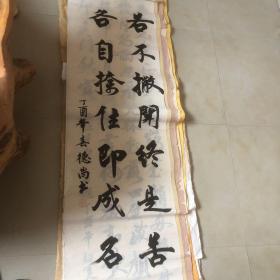 若不撇開終是苦
各自捺住即成名
丁酉年春德尚书